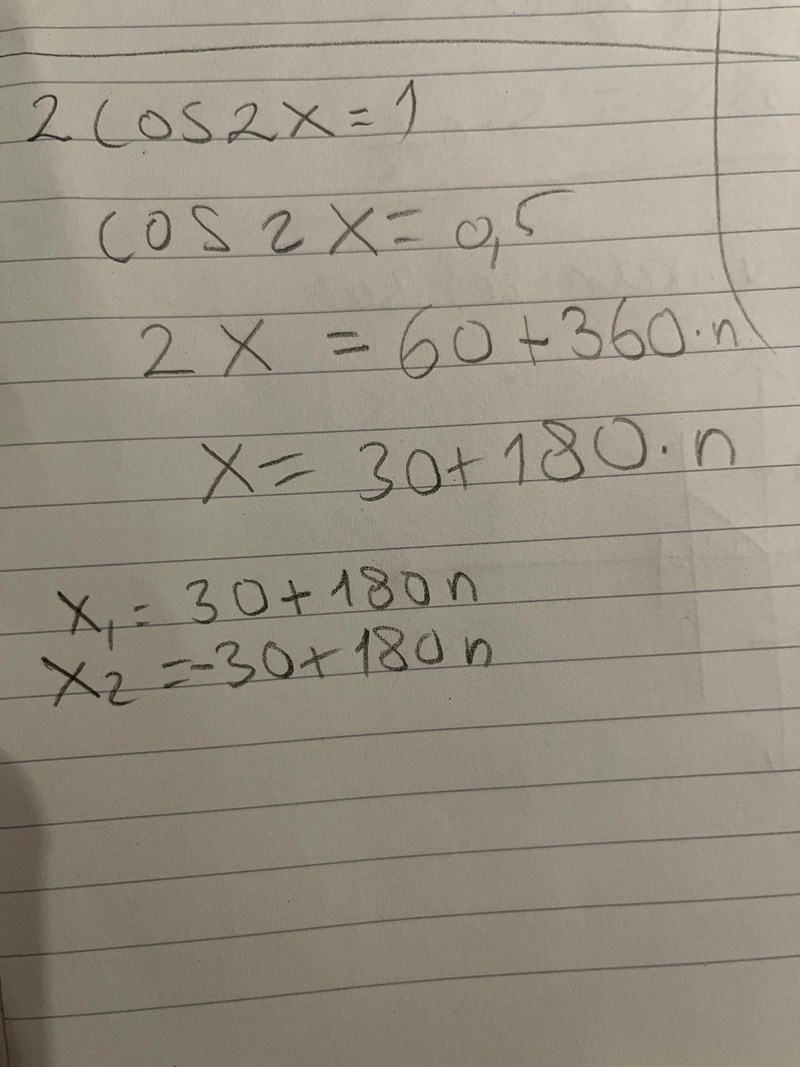 2cos2x=1
cos2x=0,5
2x=60+360·n
x=30+180·n
x₁=30+180n
x₂=-30+180n